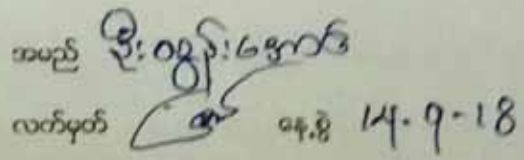 အမည် ဦးဝဏ္ဏအောင်
လက်မှတ် နေ့စွဲ 14.9-18